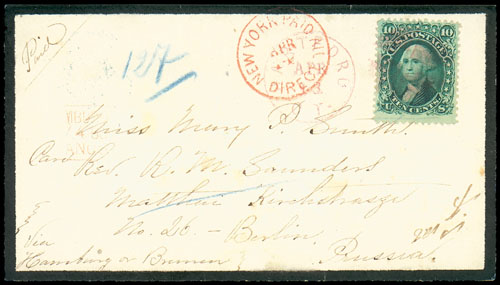 Paid
127
NEW YORK PAID ALL
APR
DIRECT
10 U.S. POSTAGE 10
TEN CENTS
Miss Mary P. Smith
Care Rev. R. M. Saunders
Matthei Kirchstrasse
No. 26 - Berlin
Via
Hamburg or Bremen
Prussia.